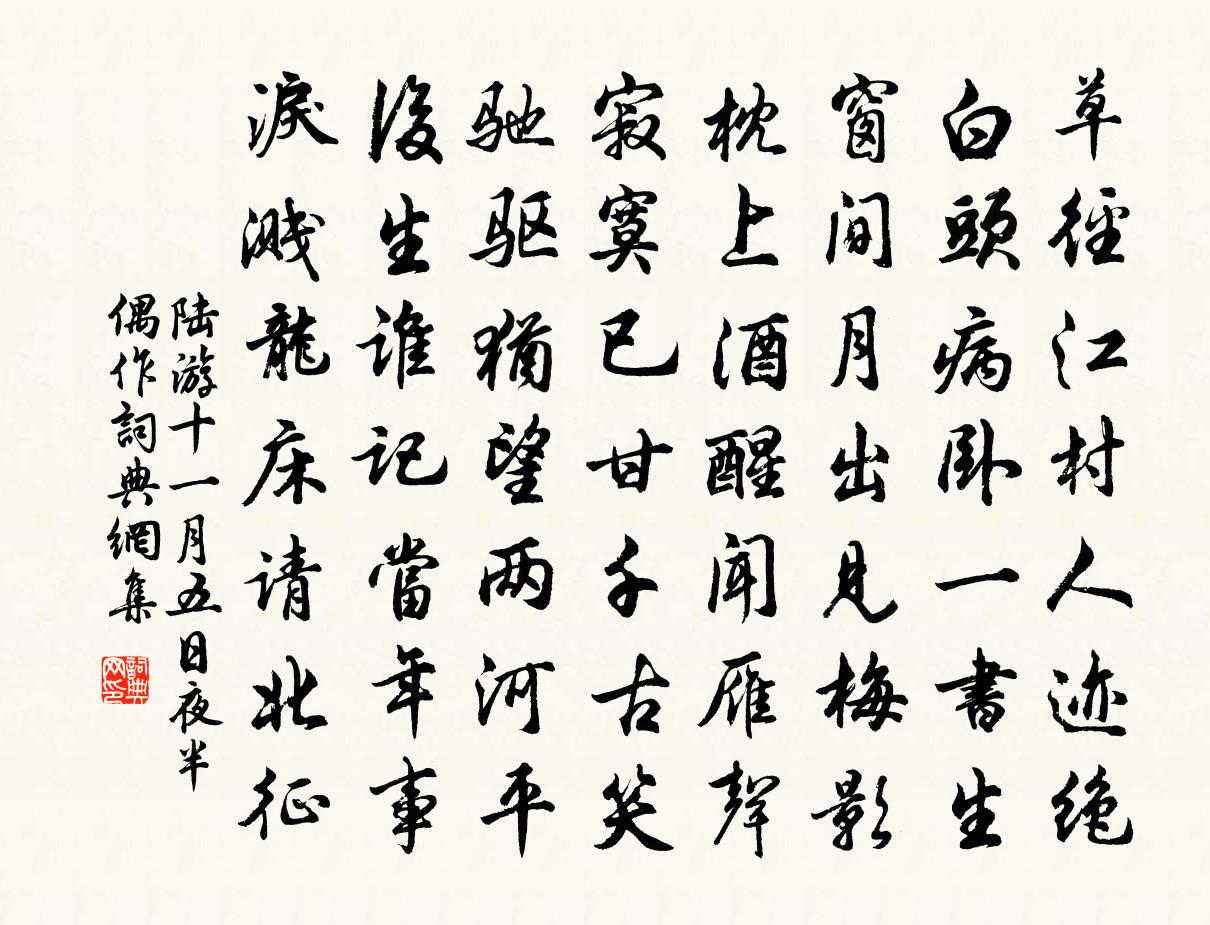 草徑江村人迹绝
白頭病卧一書生
窗间月出見梅影
枕上酒醒闻雁聲
寂寞已甘千古笑
驰驱猶望两河平
後生谁記當年事
淚溅龍床请北征
陆游十一月五日夜半
偶作詞典網集
詞典网印